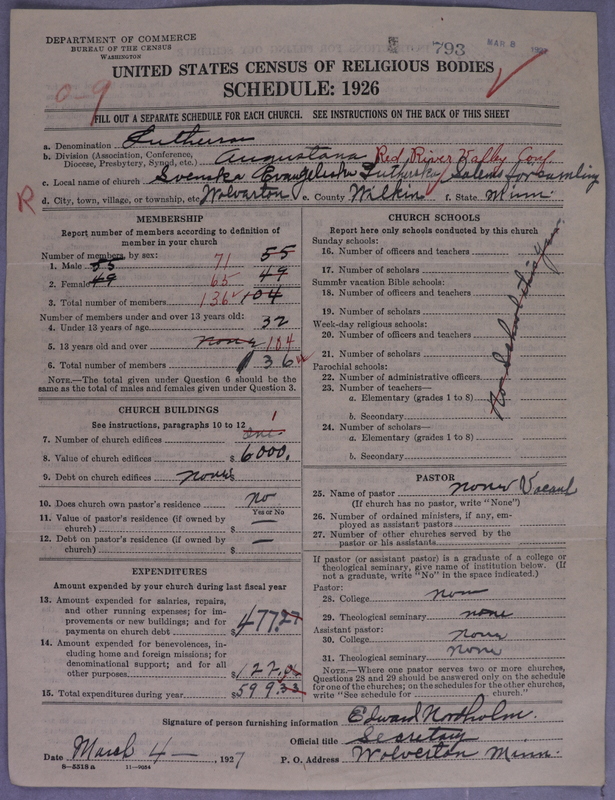 DEPARTMENT OF COMMERCE
BUREAU OF THE CENSUS
WASHINGTON
793
MAR 8 1927
UNITED STATES CENSUS OF RELIGIOUS BODIES
SCHEDULE: 1926
0-9
FILL OUT A SEPARATE SCHEDULE FOR EACH CHURCH. SEE INSTRUCTIONS ON THE BACK OF THIS SHEET
a. Denomination Lutheran
b. Division (Association, Conference, Diocese, Presbytery, Synod, etc.) Augustana Red River Valley Conf.
c. Local name of church Svenska Evangeliska Lutherska Salems forsamling
R d. City, town, village, or township, etc. Wolverton e. County Wilkin f. State Minn.
MEMBERSHIP
Report number of members according to definition of
member in your church
Number of members, by sex:
1. Male 55 71 55
2. Female 49 65 49
3. Total number of members 136 104
Number of members under and over 13 years old:
4. Under 13 years of age 32
5. 13 years old and over none 104
6. Total number of members 136
NOTE.—The total given under Question 6 should be the
same as the total of males and females given under Question 3.
CHURCH BUILDINGS
See instructions, paragraphs 10 to 12
7. Number of church edifices one 1
8. Value of church edifices $ 6000.
9. Debt on church edifices none $
10. Does church own pastor's residence? no
Yes or No
11. Value of pastor's residence (if owned by
church) $ —
12. Debt on pastor's residence (if owned by
church) $ —
EXPENDITURES
Amount expended by your church during last fiscal year
13. Amount expended for salaries, repairs,
and other running expenses; for im-
provements or new buildings; and for
payments on church debt $ 477.27
14. Amount expended for benevolences, in-
cluding home and foreign missions; for
denominational support; and for all
other purposes $ 122.
15. Total expenditures during year $ 599.33
CHURCH SCHOOLS
Report here only schools conducted by this church
Sunday schools:
16. Number of officers and teachers
17. Number of scholars
Summer vacation Bible schools:
18. Number of officers and teachers
19. Number of scholars
Week-day religious schools:
20. Number of officers and teachers
21. Number of scholars
Parochial schools:
22. Number of administrative officers
23. Number of teachers—
a. Elementary (grades 1 to 8)
b. Secondary
24. Number of scholars—
a. Elementary (grades 1 to 8)
b. Secondary
No School this year.
PASTOR
25. Name of pastor none Vacant
(If church has no pastor, write "None")
26. Number of ordained ministers, if any, em-
ployed as assistant pastors
27. Number of other churches served by the
pastor or his assistants
If pastor (or assistant pastor) is a graduate of a college or
theological seminary, give name of institution below. (If
not a graduate, write "No" in the space indicated.)
Pastor:
28. College none
29. Theological seminary none
Assistant pastor:
30. College none
31. Theological seminary none
NOTE.—Where one pastor serves two or more churches,
Questions 28 and 29 should be answered only on the schedule
for one of the churches; on the schedules for the other churches,
write "See schedule for church."
Signature of person furnishing information Edward Nordholm.
Official title Secretary
Date March 4 — 1927 P. O. Address Wolverton Minn.
8—5518a 11—9054